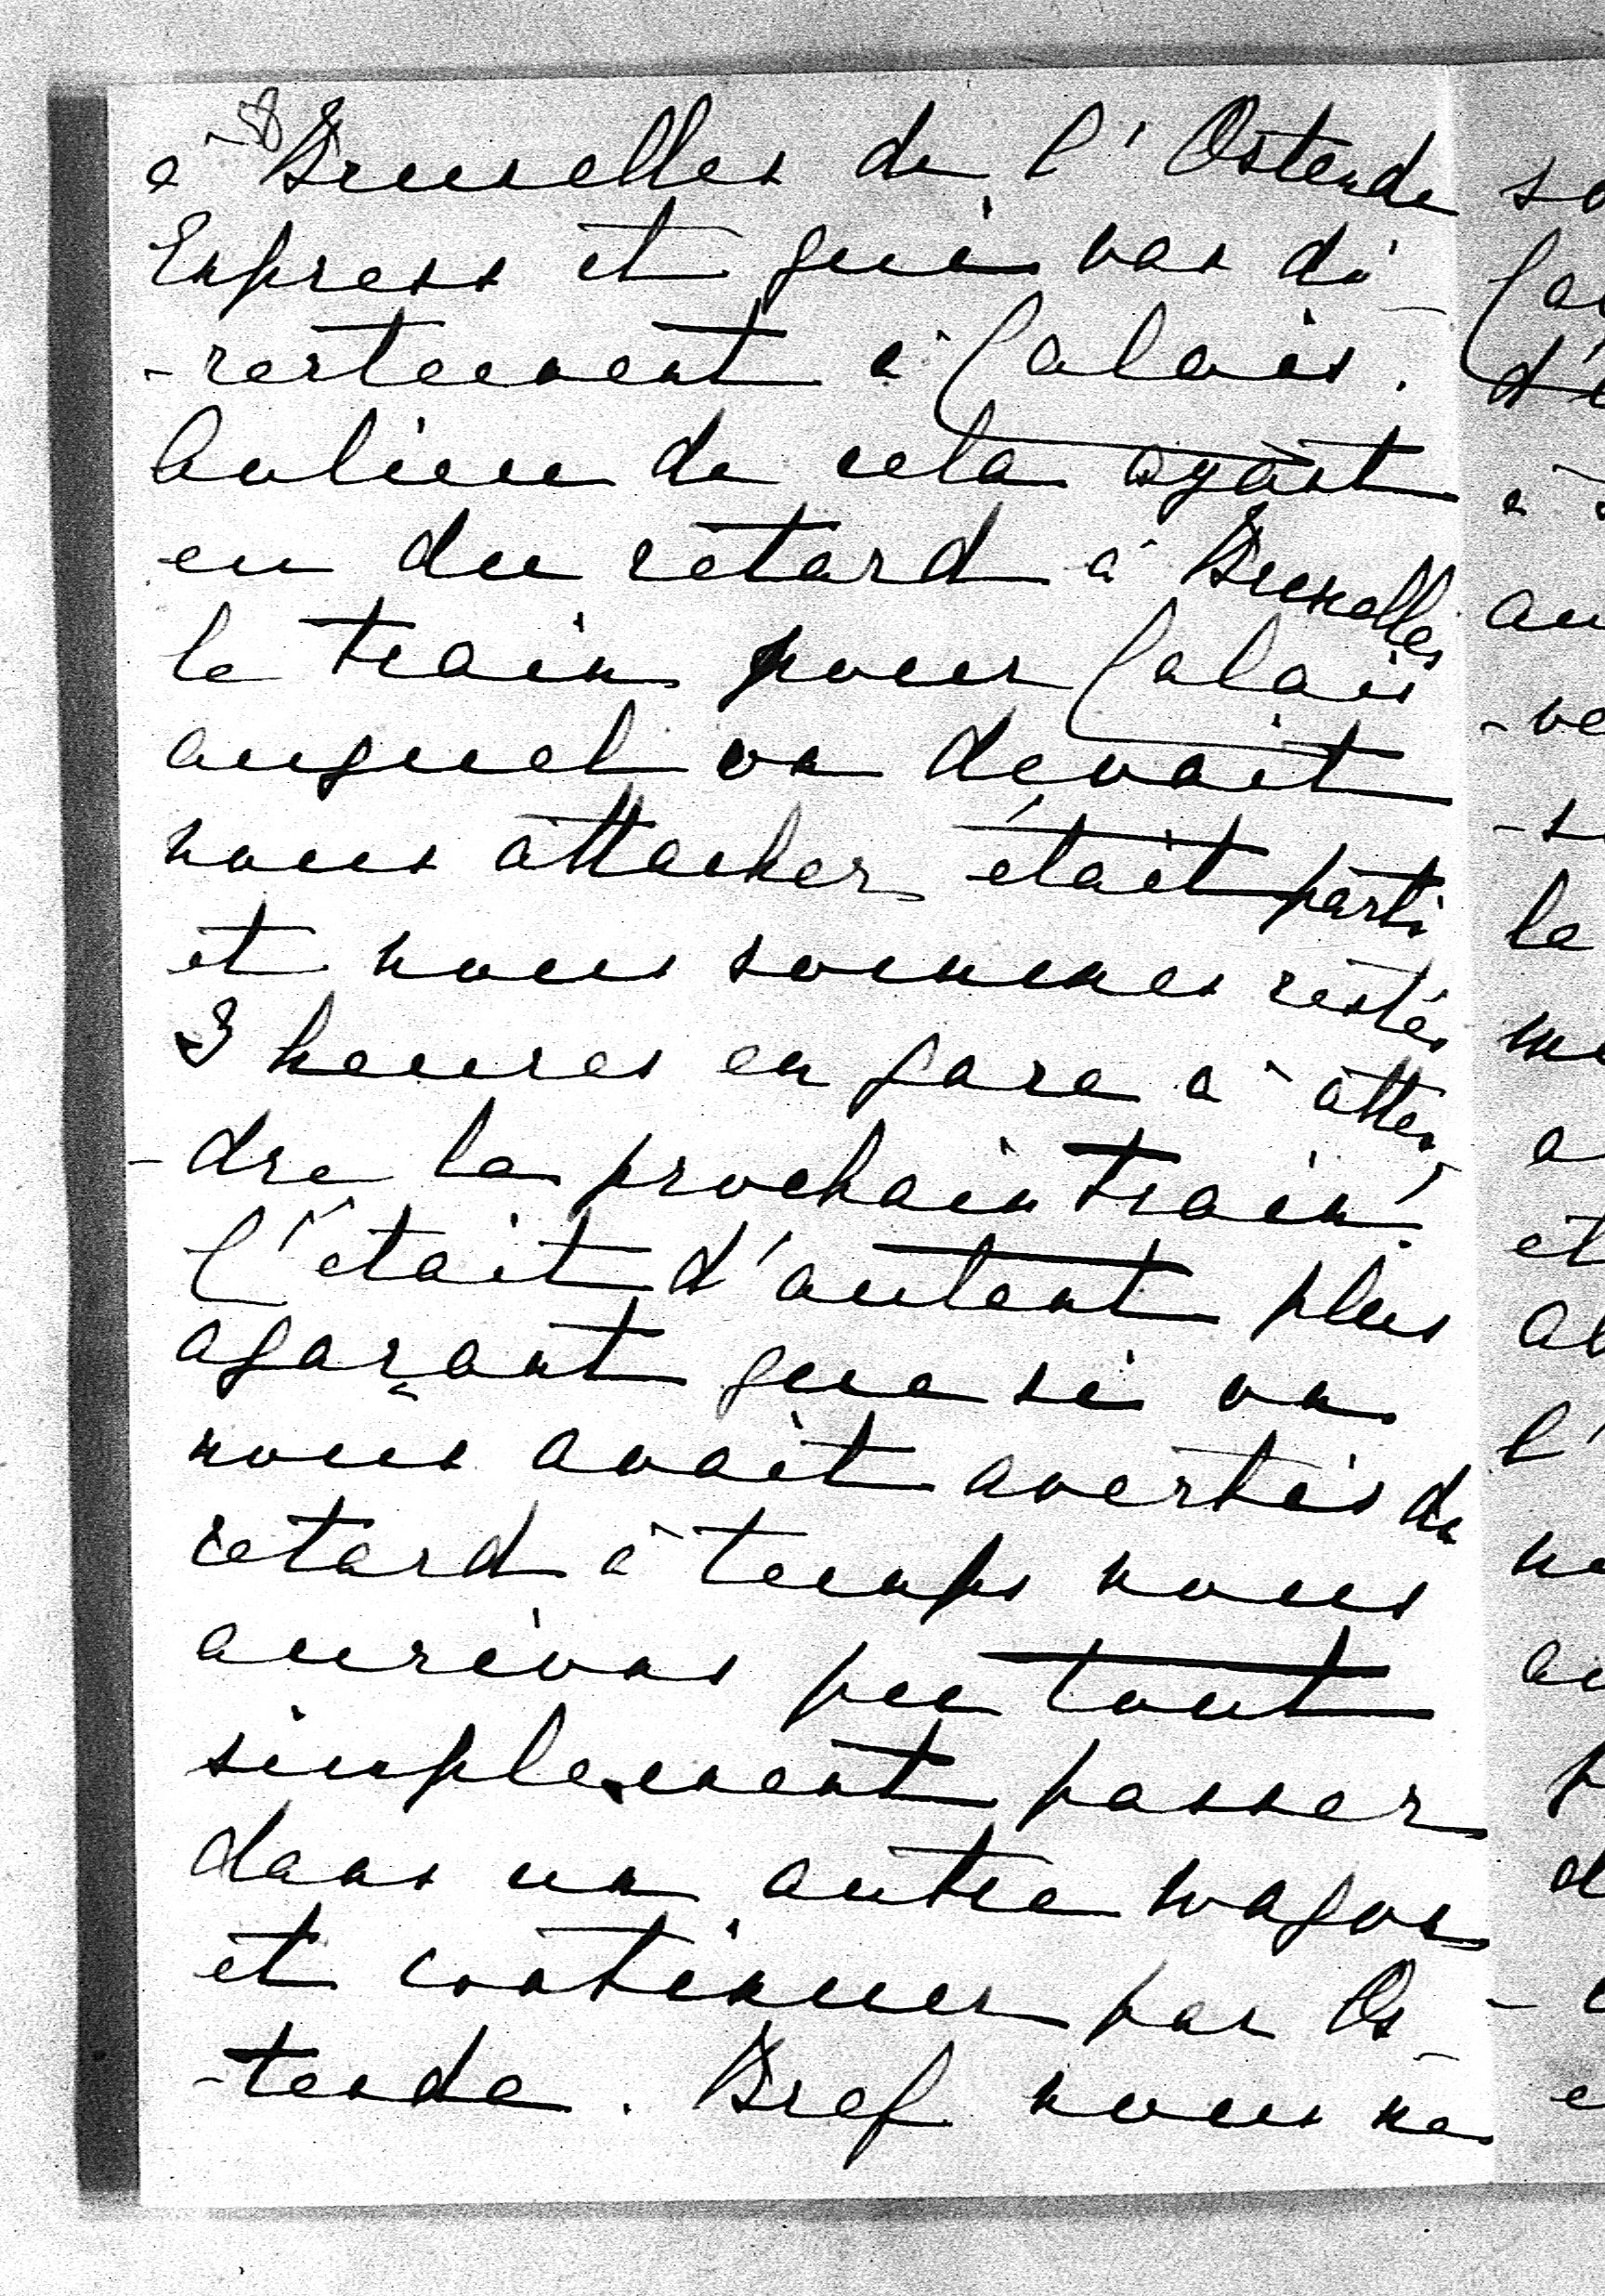 58
à Bruxelles de l'Ostende
Express et qui vas di-
-rectement à Calais.
Aulieu de cela ayant
eu du retard à Bruxelles
le train pour Calais
auquel on devait
nous attacher était parti
et nous sommes restés
3 heures en gare à atten-
-dre le prochain train!
C'était d'autant plus
agaçant que si on
nous avait avertis du
retard à temps nous
aurions pu tout
simplement passer
dans un autre wagon
et continuer par Os-
-tende. Bref nous ne